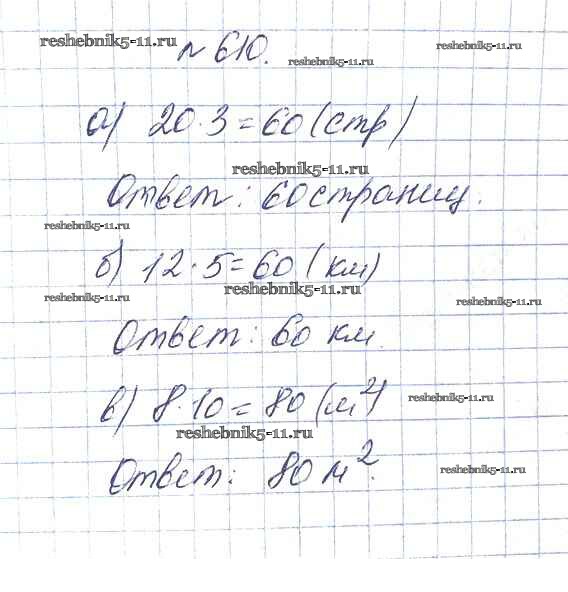 reshebnik5-11.ru
№610.
reshebnik5-11.ru
reshebnik5-11.ru
а) 20·3=60(стр)
reshebnik5-11.ru
Ответ: 60 страниц.
reshebnik5-11.ru
б) 12·5=60 (км)
reshebnik5-11.ru
reshebnik5-11.ru
reshebnik5-11.ru
Ответ: 60 км.
в) 8·10=80 (м²)
reshebnik5-11.ru
reshebnik5-11.ru
Ответ: 80 м².
reshebnik5-11.ru